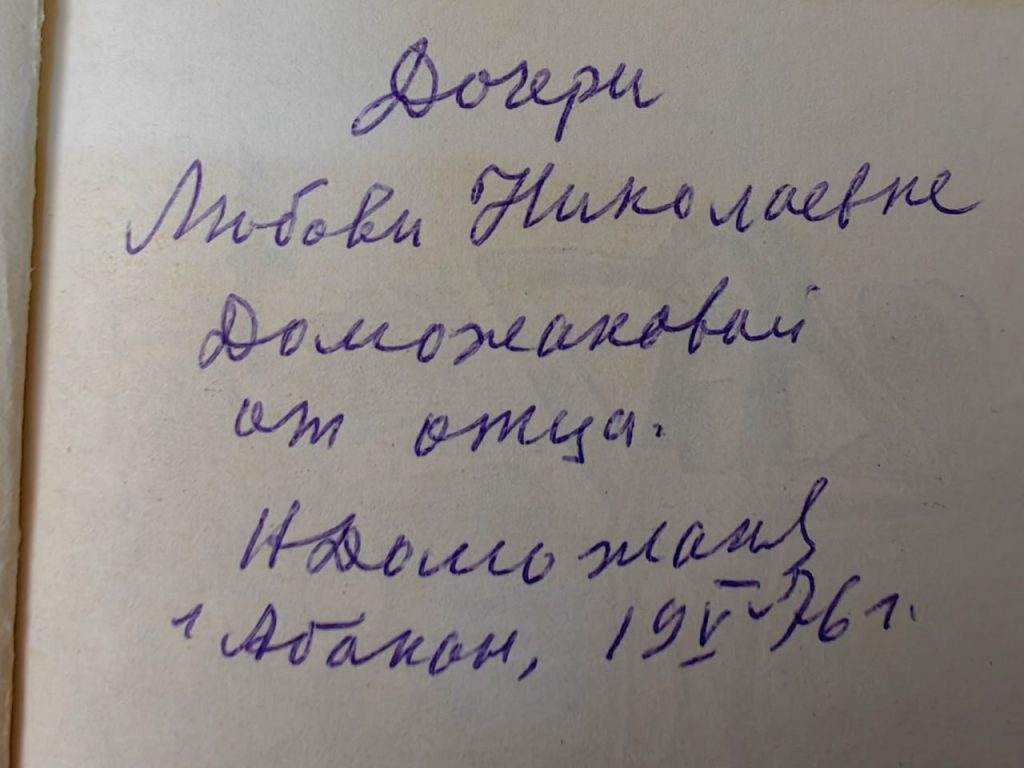 Дочери
Любови Николаевне
Доможаковой
от отца.
НДоможак
г Абакан, 19 V 76 г.